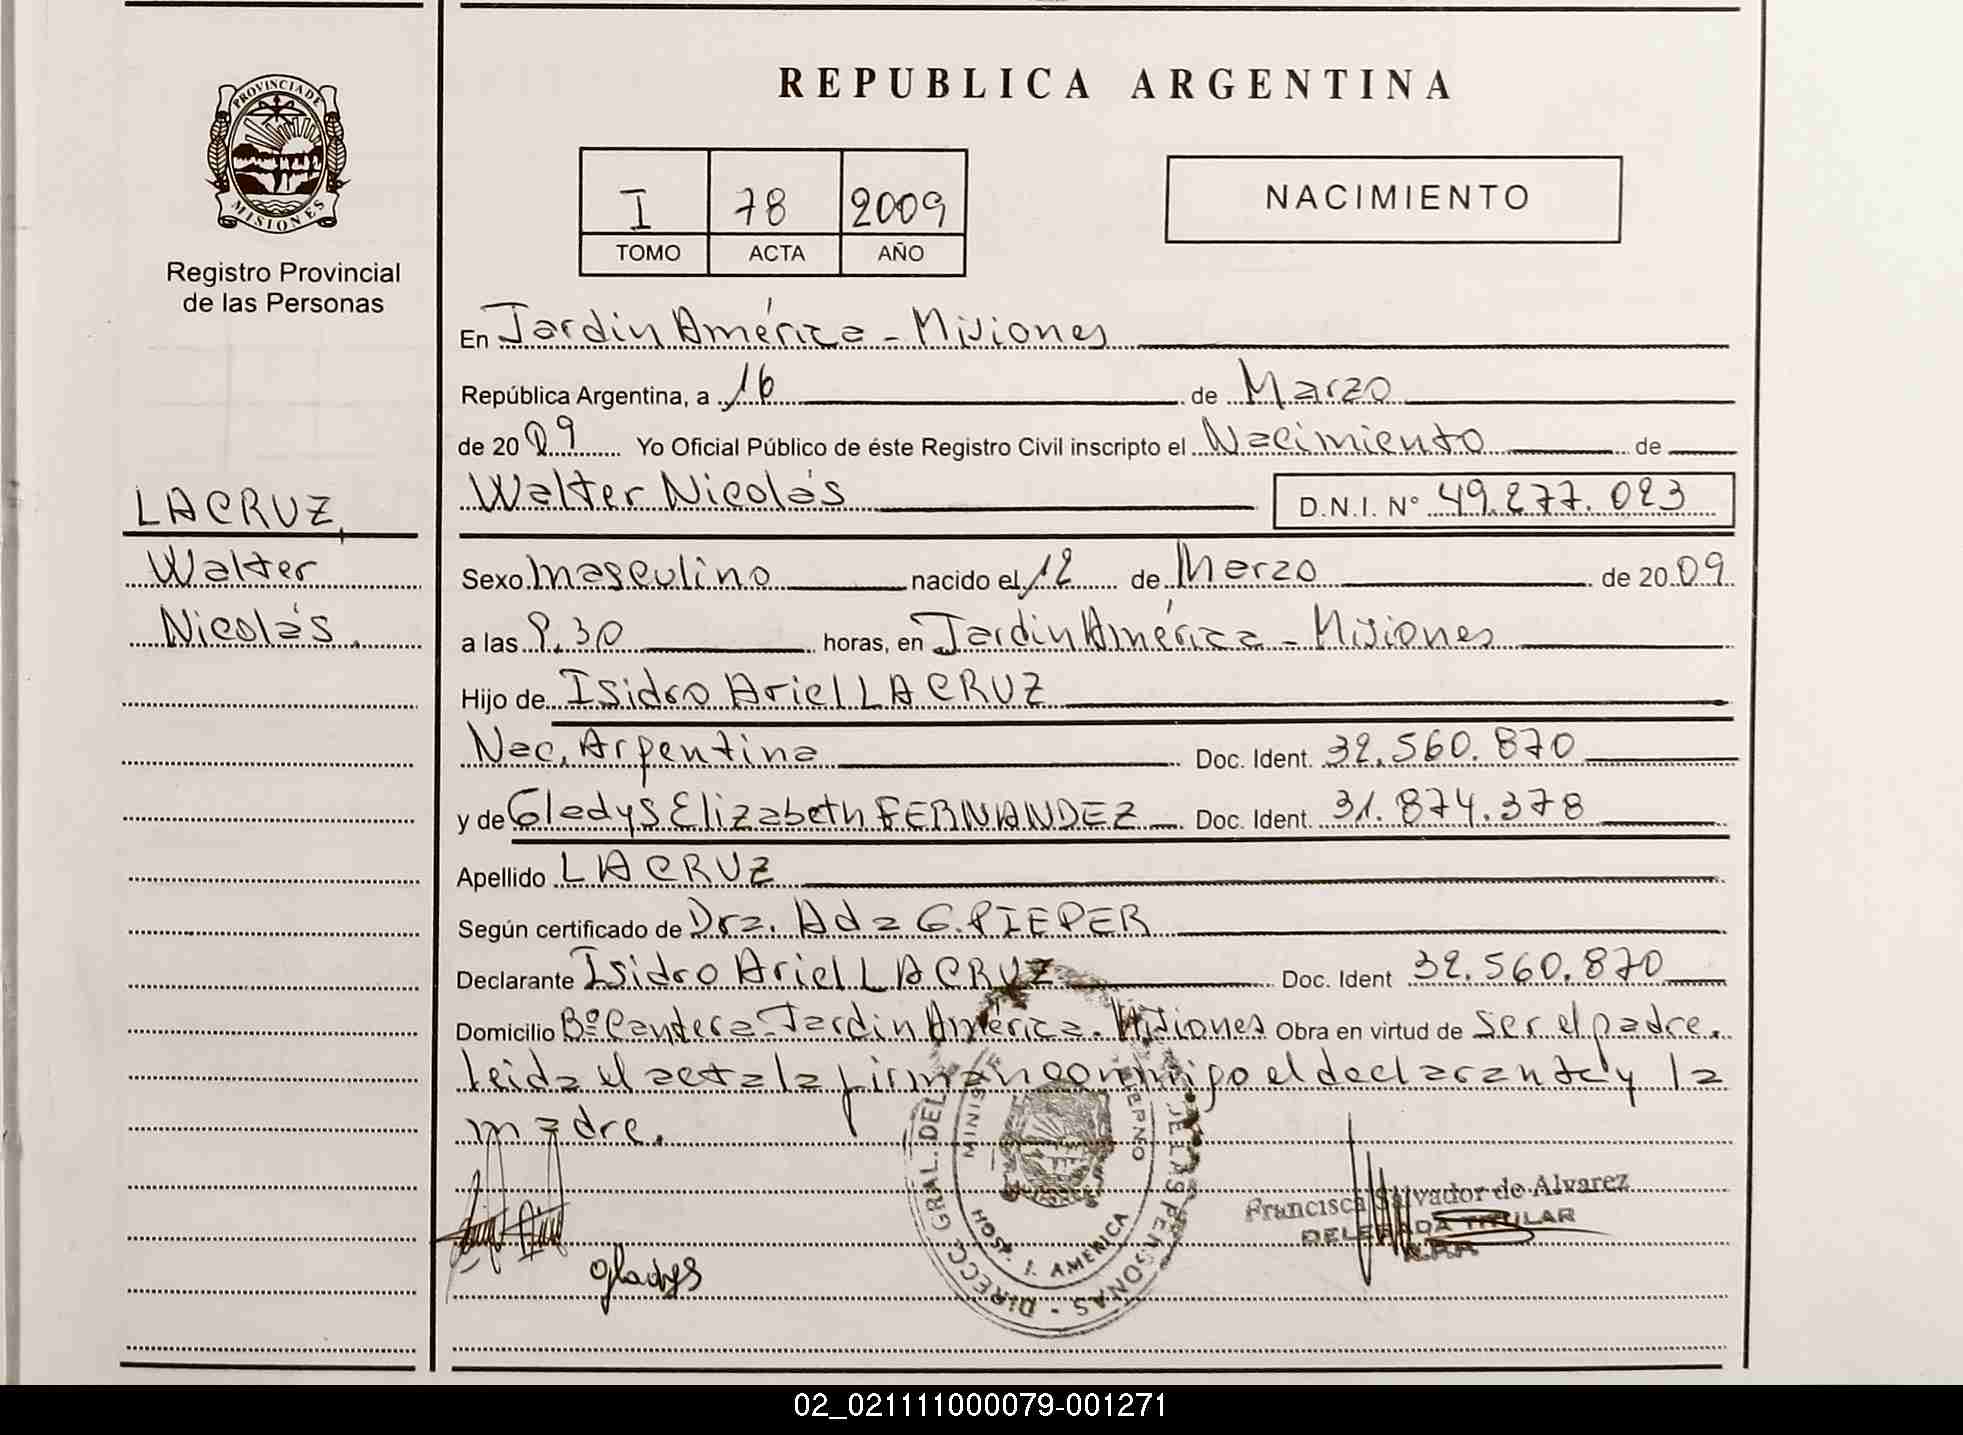 REPUBLICA ARGENTINA
PROVINCIA DE
MISIONES
Registro Provincial
de las Personas
I 78 2009
TOMO ACTA AÑO
NACIMIENTO
En Jardin América - Misiones
República Argentina, a 16 de Marzo
de 2009 Yo Oficial Público de éste Registro Civil inscripto el Nacimiento de
Walter Nicolás D.N.I. Nº 49.277.023
LACRUZ,
Walter
Nicolás.
Sexo Masculino nacido el 12 de Marzo de 2009
a las 9.30 horas, en Jardin América - Misiones
Hijo de Isidro Ariel LACRUZ
Nac. Argentina Doc. Ident. 32.560.870
y de Gladys Elizabeth FERNANDEZ Doc. Ident. 31.874.378
Apellido LACRUZ
Según certificado de Dra. Ada G. PIEPER
Declarante Isidro Ariel LACRUZ Doc. Ident 32.560.870
Domicilio Bº Cantera - Jardin América - Misiones Obra en virtud de ser el padre.
Leida el acta la firman conmigo el declarante y la
madre.
DIRECC. GRAL. DEL DE LAS PERSONAS -
HOSP. J. AMERICA
gladys
Francisca Salvador de Alvarez
DELEGADA TITULAR
02_021111000079-001271